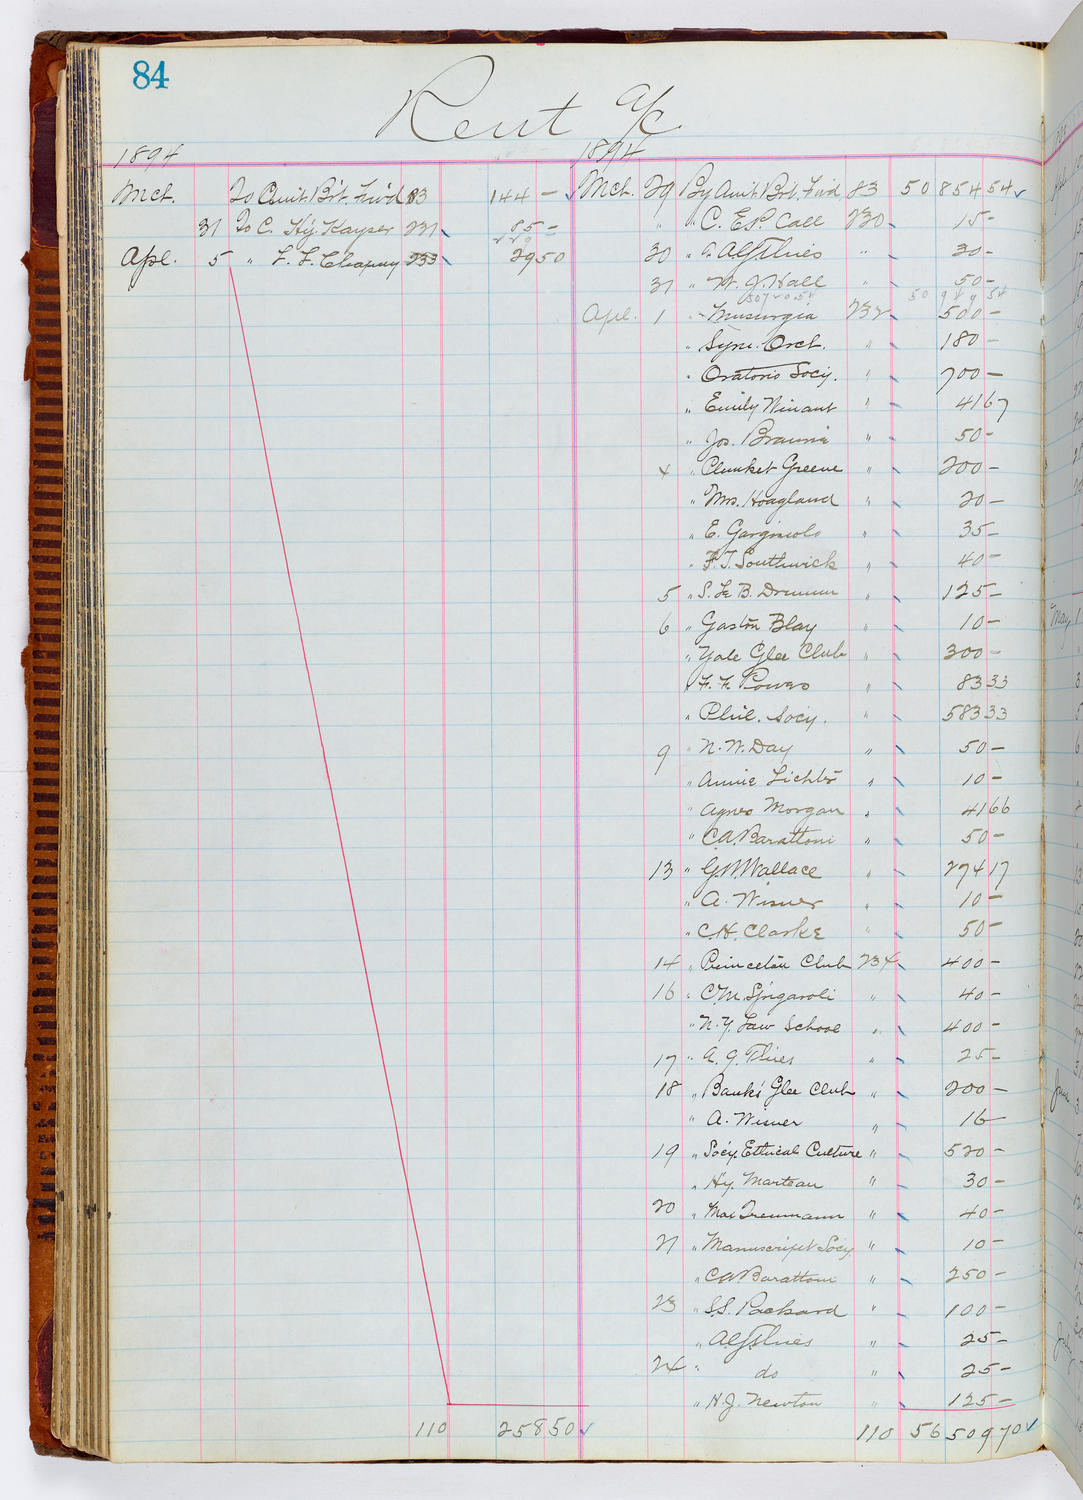 84
Rent a/c
1894
Mch. To Amt. Br't. Fw'd 83 144 —
31 To C. Hy. Kayser 231 85 —
Apl. 5 " F. F. Chapmy 233 29 50
110 258 50
1894
Mch. 29 By Amt. Brt. Fw'd. 83 50 854 54
" " C. E. P. Call 230 15 —
30 " " 30 —
31 " W. J. Hall " 50 —
50 949 54
Apl. 1 " Musurgia 232 500 —
" Sym. Orch. " 180 —
" Oratorio Socy. " 700 —
" Emily Winant " 41 67
" Jos. " 50 —
4 " Plunket Greene " 200 —
" Mrs. Hoagland " 20 —
" E. " 35 —
" F. T. Southwick " 40 —
5 " S. Le B. Drumm " 125 —
6 " Gaston Blay " 10 —
" Yale Glee Club " 300 —
" F. F. Powers " 83 33
" Phil. Socy. " 583 33
9 " N. W. Day " 50 —
" Annie " 10 —
" Agnes Morgan " 41 66
" C. A. Barattoni " 50 —
13 " G. W. Wallace " 274 17
" A. Wisner " 10 —
" C. H. Clarke " 50 —
14 " Princeton Club 234 400 —
16 " C. M. " 40 —
" N. Y. Law School " 400 —
17 " A. G. Thies " 25 —
18 " Bank's Glee Club " 200 —
" A. Wisner " 16 —
19 " Soc'y Ethical Culture " 520 —
" Hy. Marteau " 30 —
20 " Max Treumann " 40 —
21 " Manuscript Socy. " 10 —
" C. A. Barattoni " 250 —
23 " S. S. Packard " 100 —
" Thies " 25 —
24 " do " 25 —
" H. J. Newton " 125 —
110 56 509 70